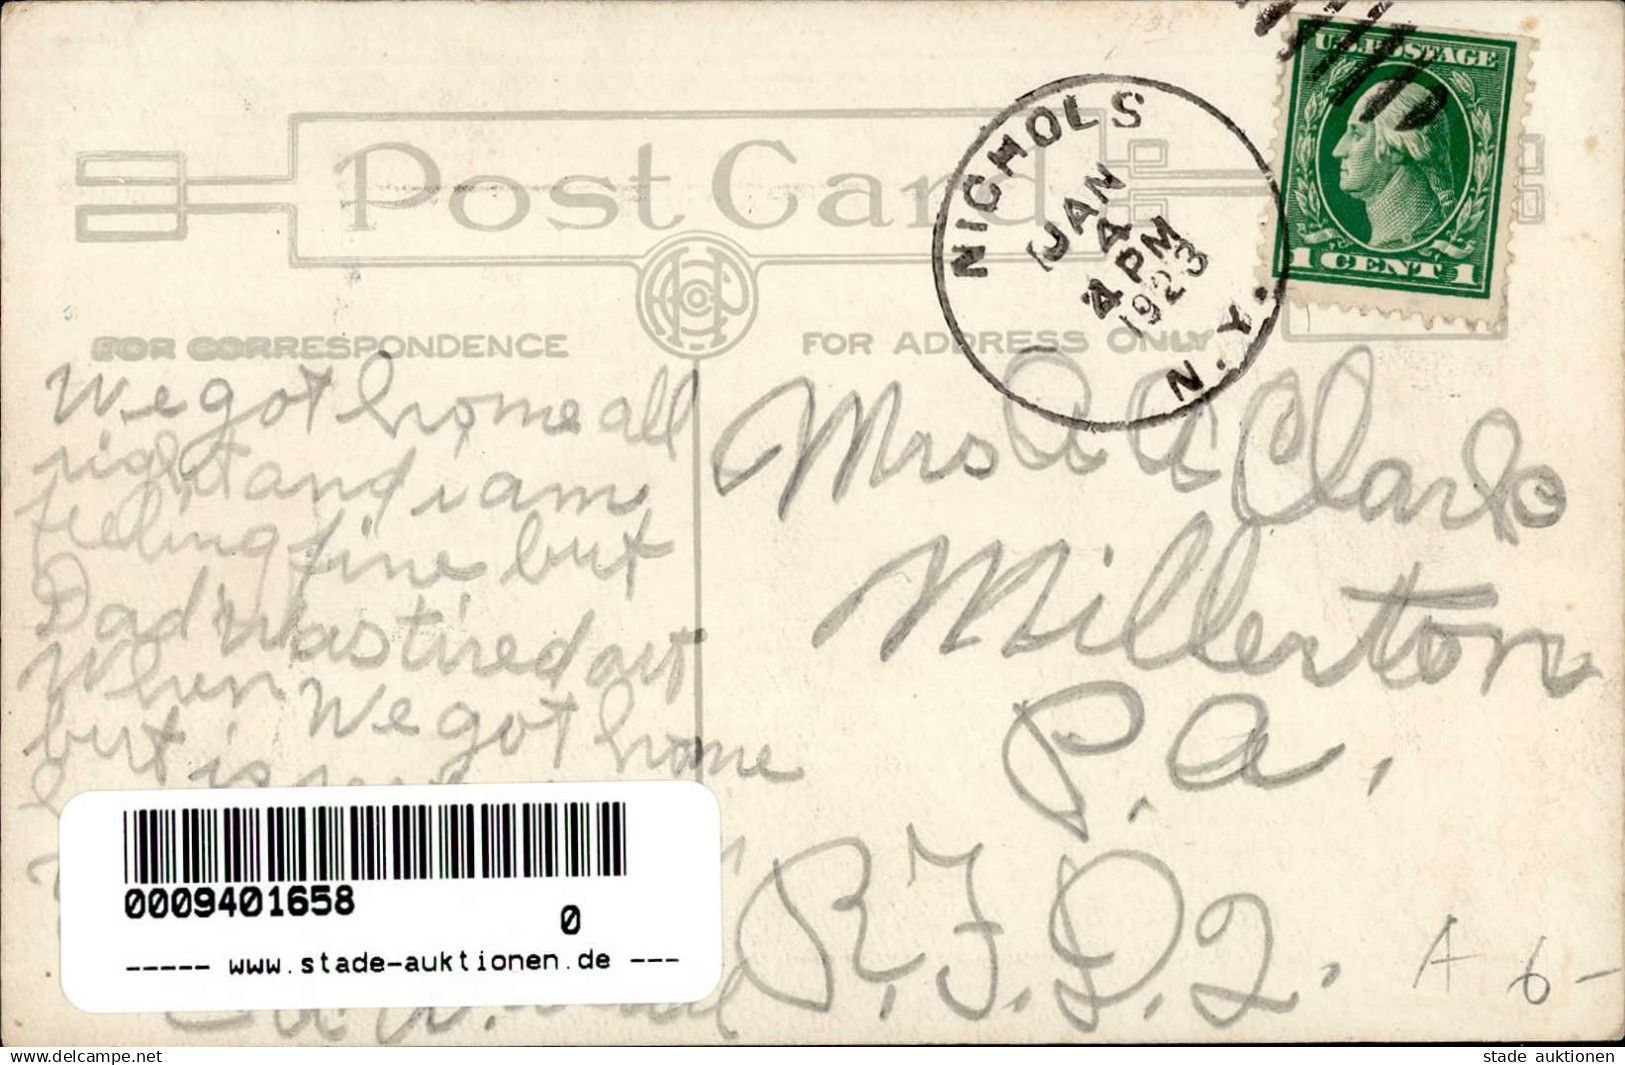 U.S. POSTAGE
1 CENT 1
NICHOLS
JAN
4
4 PM
1923
N. Y.
Post Card
FOR CORRESPONDENCE
FOR ADDRESS ONLY
We got home all
right and i am
feeling fine but
Dad was tired out
When We got home
but is
Mrs A A Clark
Millerton
P.a.
R.F.D. 2.
0009401658
0
----- www.stade-auktionen.de ---
A 6-
www.delcampe.net
stade auktionen